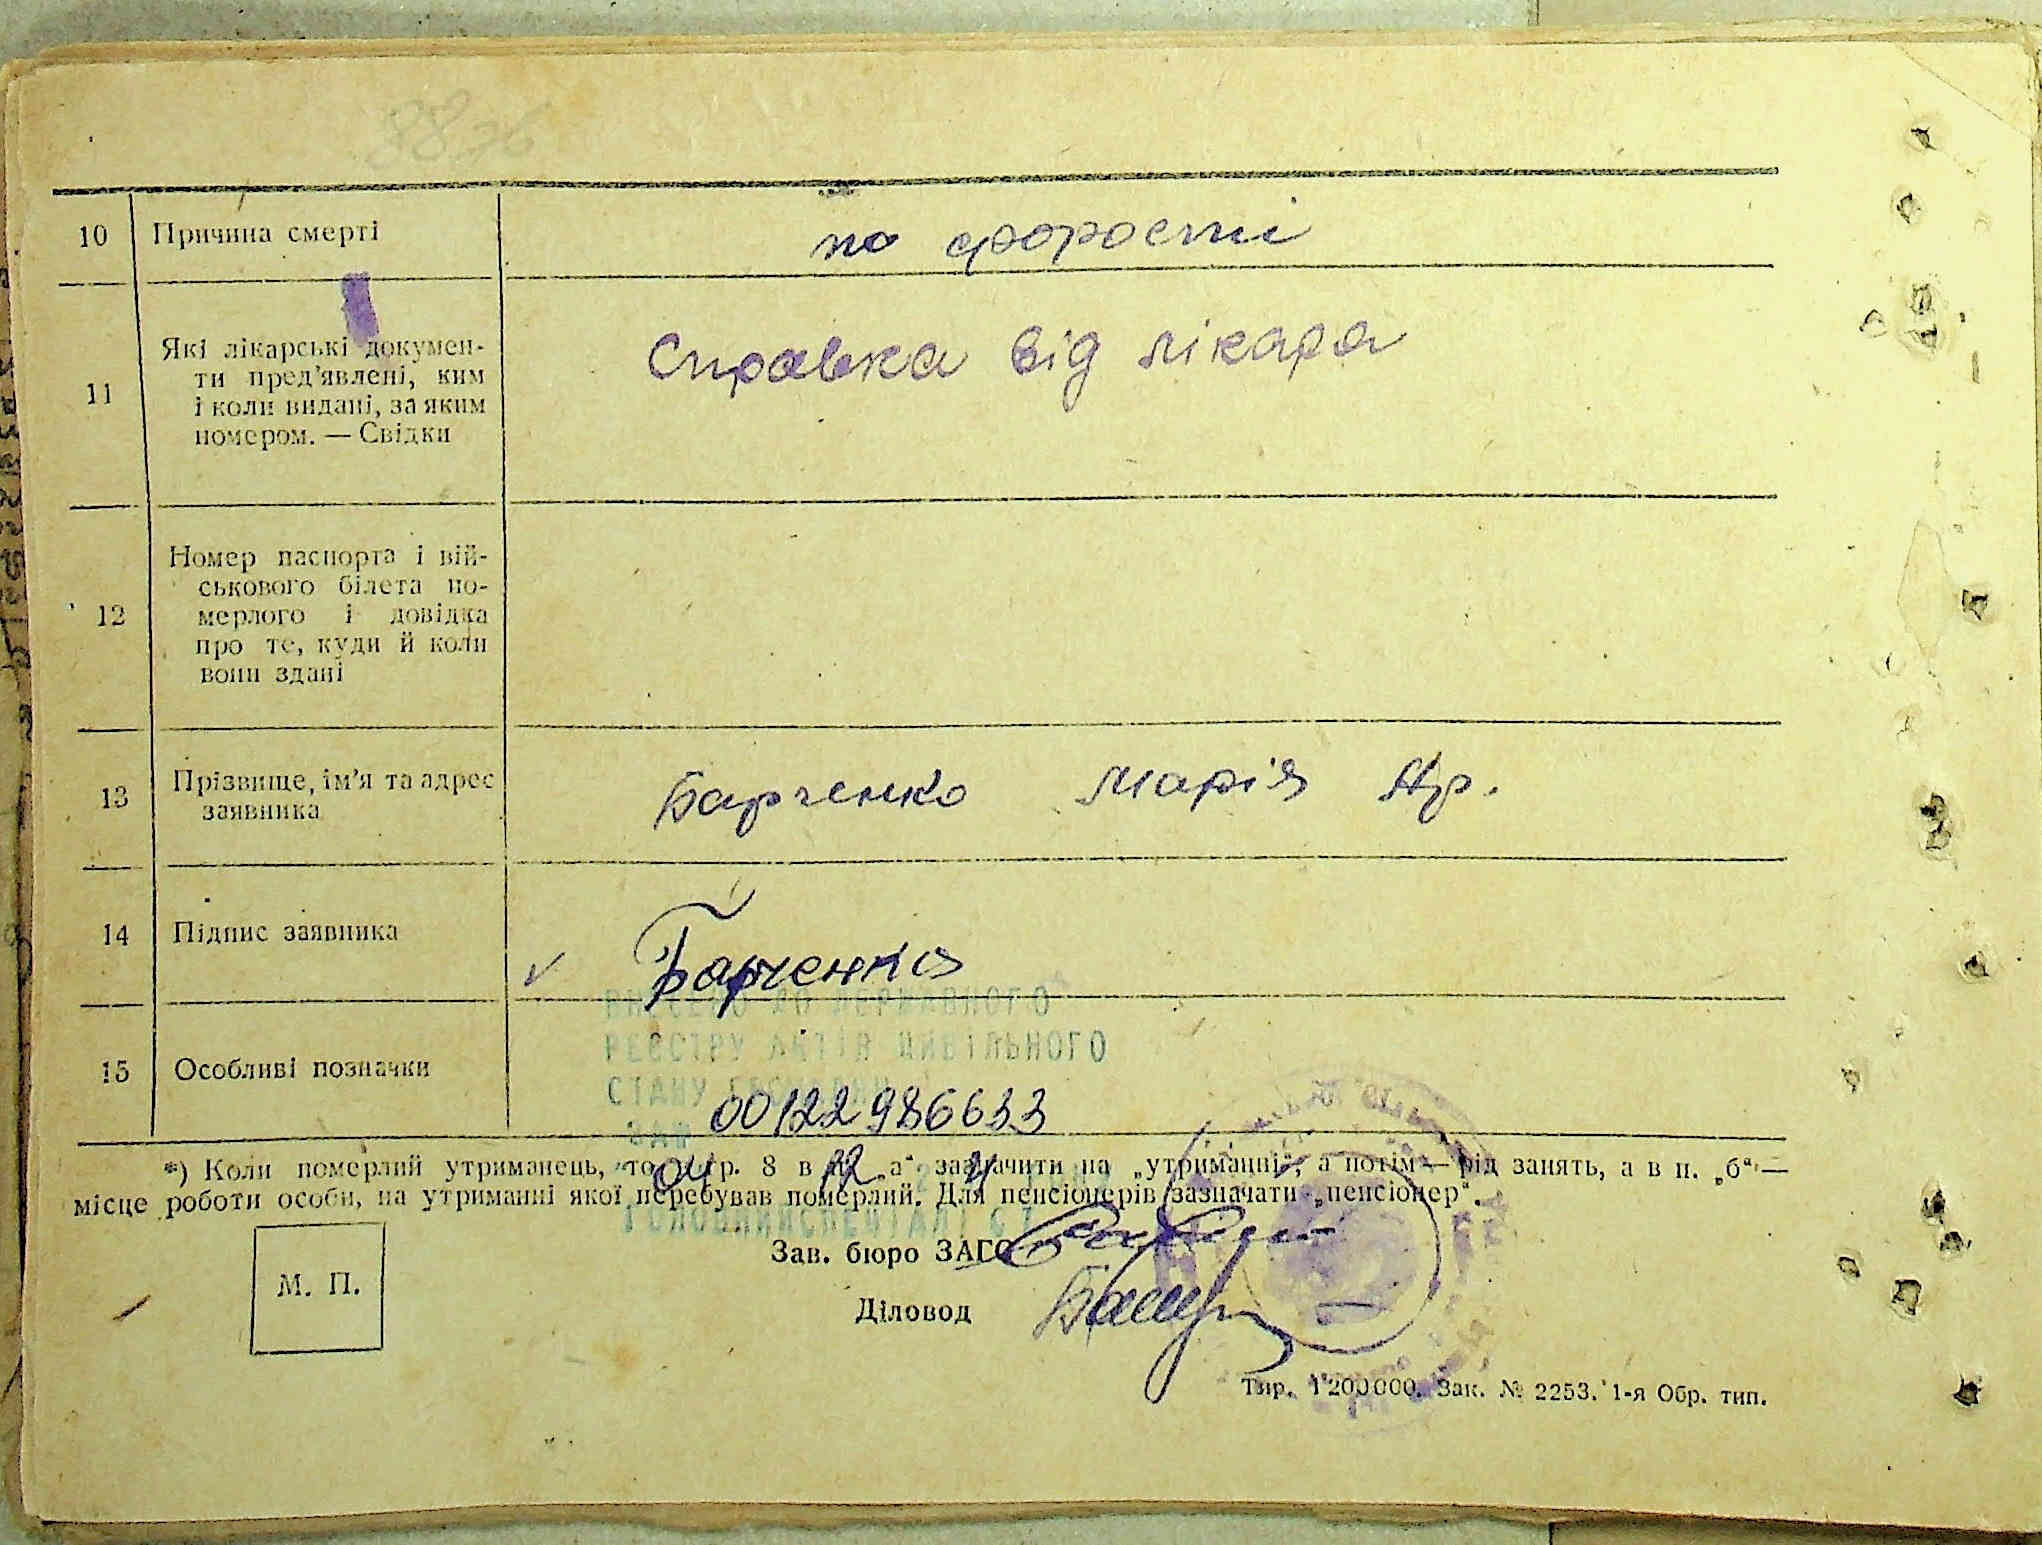 10 Причина смерті
по старості
11 Які лікарські докумен-
ти пред’явлені, ким
і коли видані, за яким
номером. — Свідки
Справка від лікара
12 Номер паспорта і вій-
ськового білета по-
мерлого і довідка
про те, куди й коли
вони здані
13 Прізвище, ім’я та адрес
заявника
Барченко Марія Яр.
14 Підпис заявника
Барченко
ВНЕСЕНО ДО ДЕРЖАВНОГО
РЕЄСТРУ АКТІВ ЦИВІЛЬНОГО
15 Особливі позначки
СТАНУ ГРОМАДЯН
00122986633
*) Коли померлий утриманець, то в гр. 8 в п. „а“ зазначити на „утриманні“, а потім — рід занять, а в п. „б“ —
місце роботи особи, на утриманні якої перебував померлий. Для пенсіонерів зазначати „пенсіонер“.
04 12
ГОЛОВНИЙ СПЕЦІАЛІСТ
Зав. бюро ЗАГС
М. П.
Діловод
Тир. 1200000. Зак. № 2253. 1-я Обр. тип.